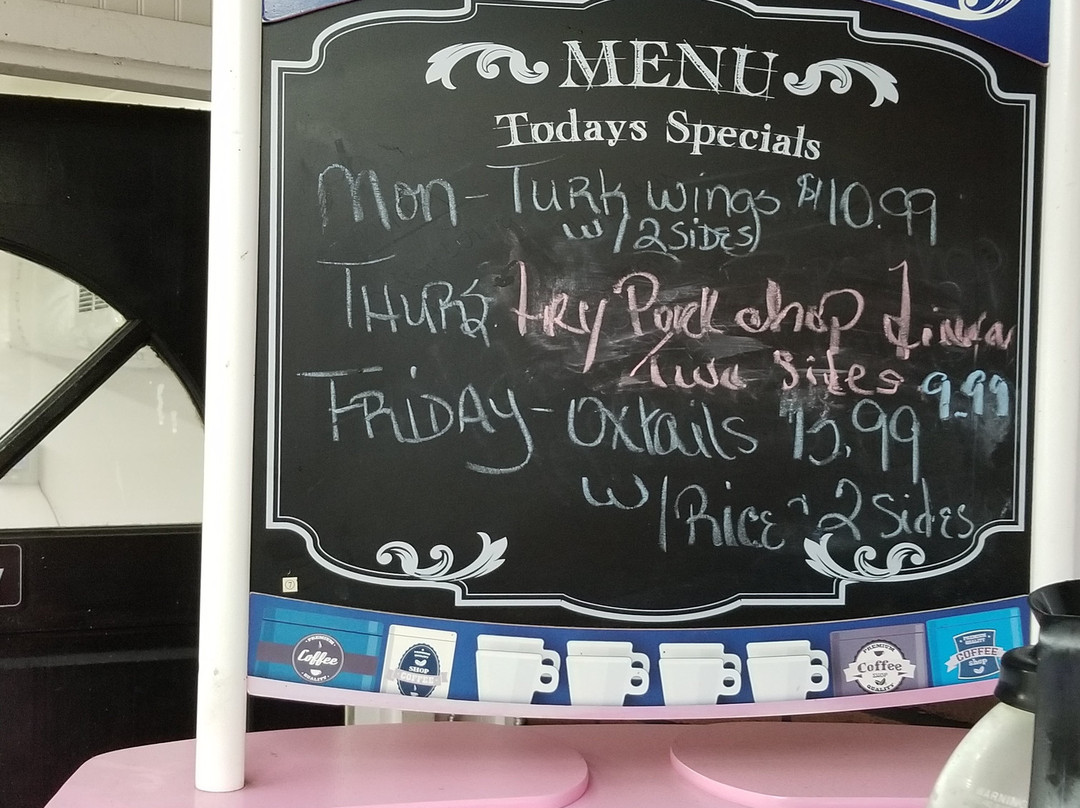 MENU
Todays Specials
Mon - Turk wings $10.99
w/ 2 Sides
THURS. Fry Pork chop dinna
Two Sides 9.99
FRIDAY - Oxtails 15.99
w/ Rice & 2 Sides
PREMIUM
Coffee
QUALITY
SHOP
COFFEE
PREMIUM
Coffee
SHOP
QUALITY
PREMIUM
QUALITY
COFFEE
shop